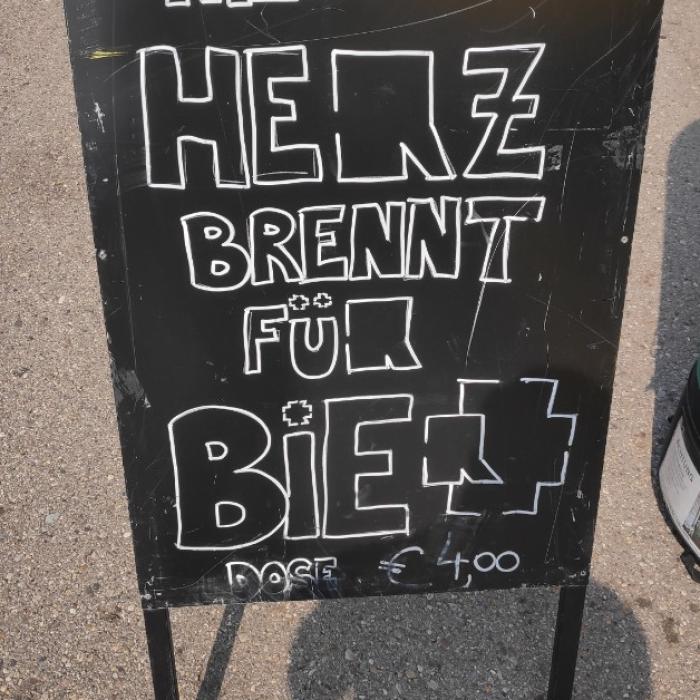 HERZ
BRENNT
FÜR
BiER
DOSE € 4,00